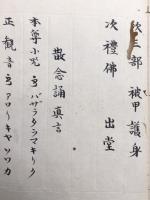 次三部 被甲護身
次禮佛 出堂
散念誦真言
本尊小咒 バザラダラマキリク
正観音 アロリキヤソワカ